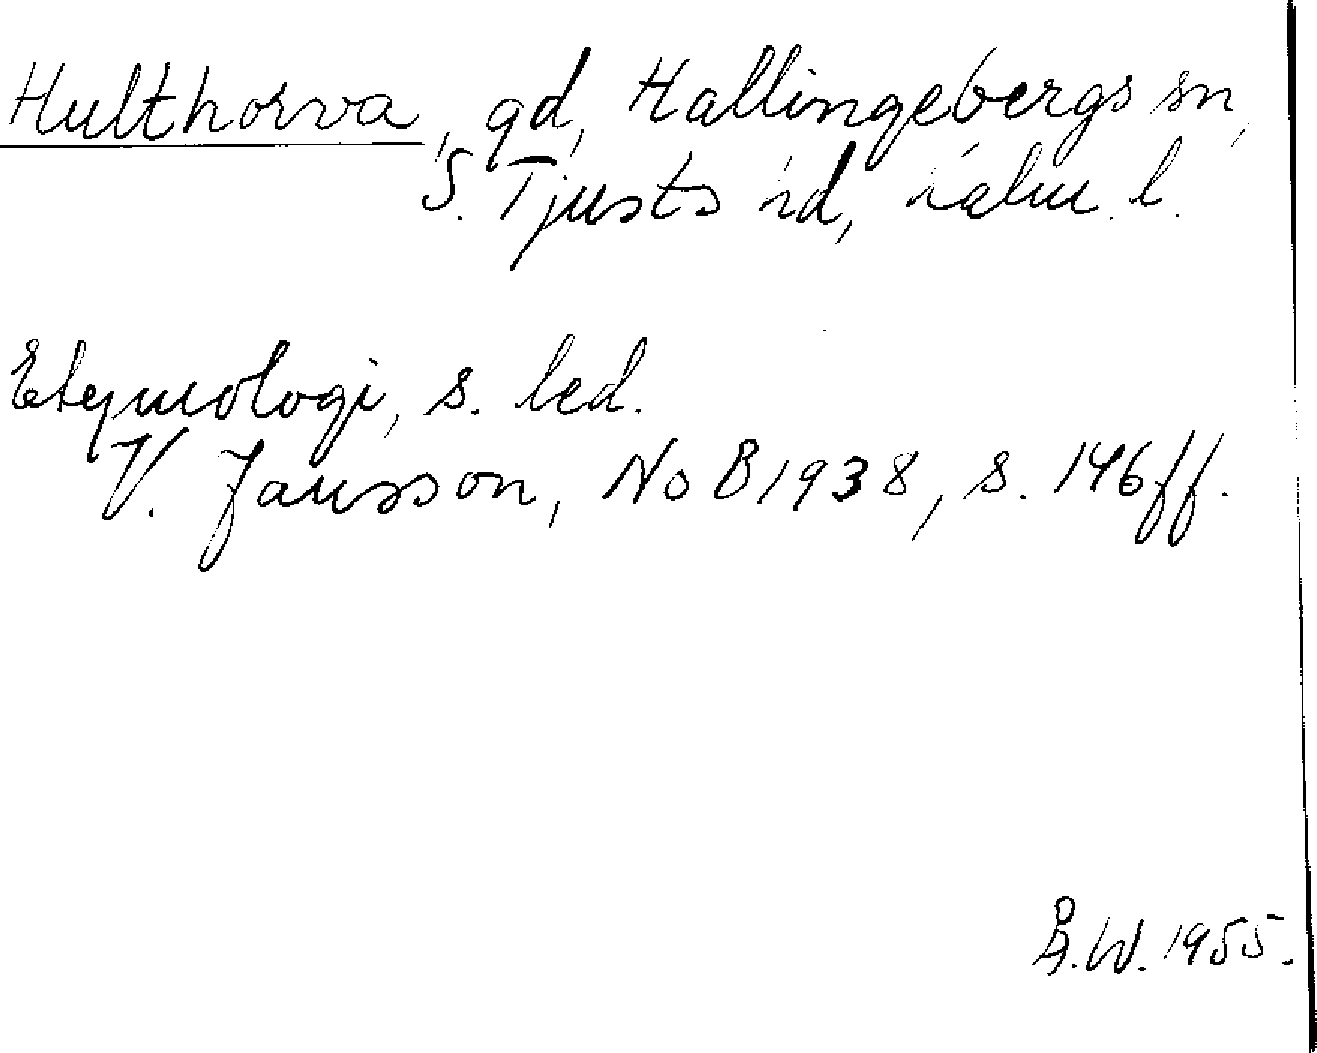 Hulthorva, gd, Hallingebergs sn,
S. Tjusts hd, Kalm. l.
Etymologi, s. led.
V. Jansson, NoB 1938, s. 146 ff.
Å.W. 1955.